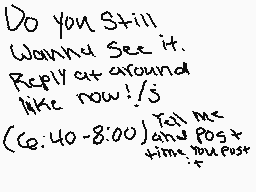 Do you still
wanna see it.
Reply at around
like now!/s
(6:40-8:00) Tell me
and post
time you post
it